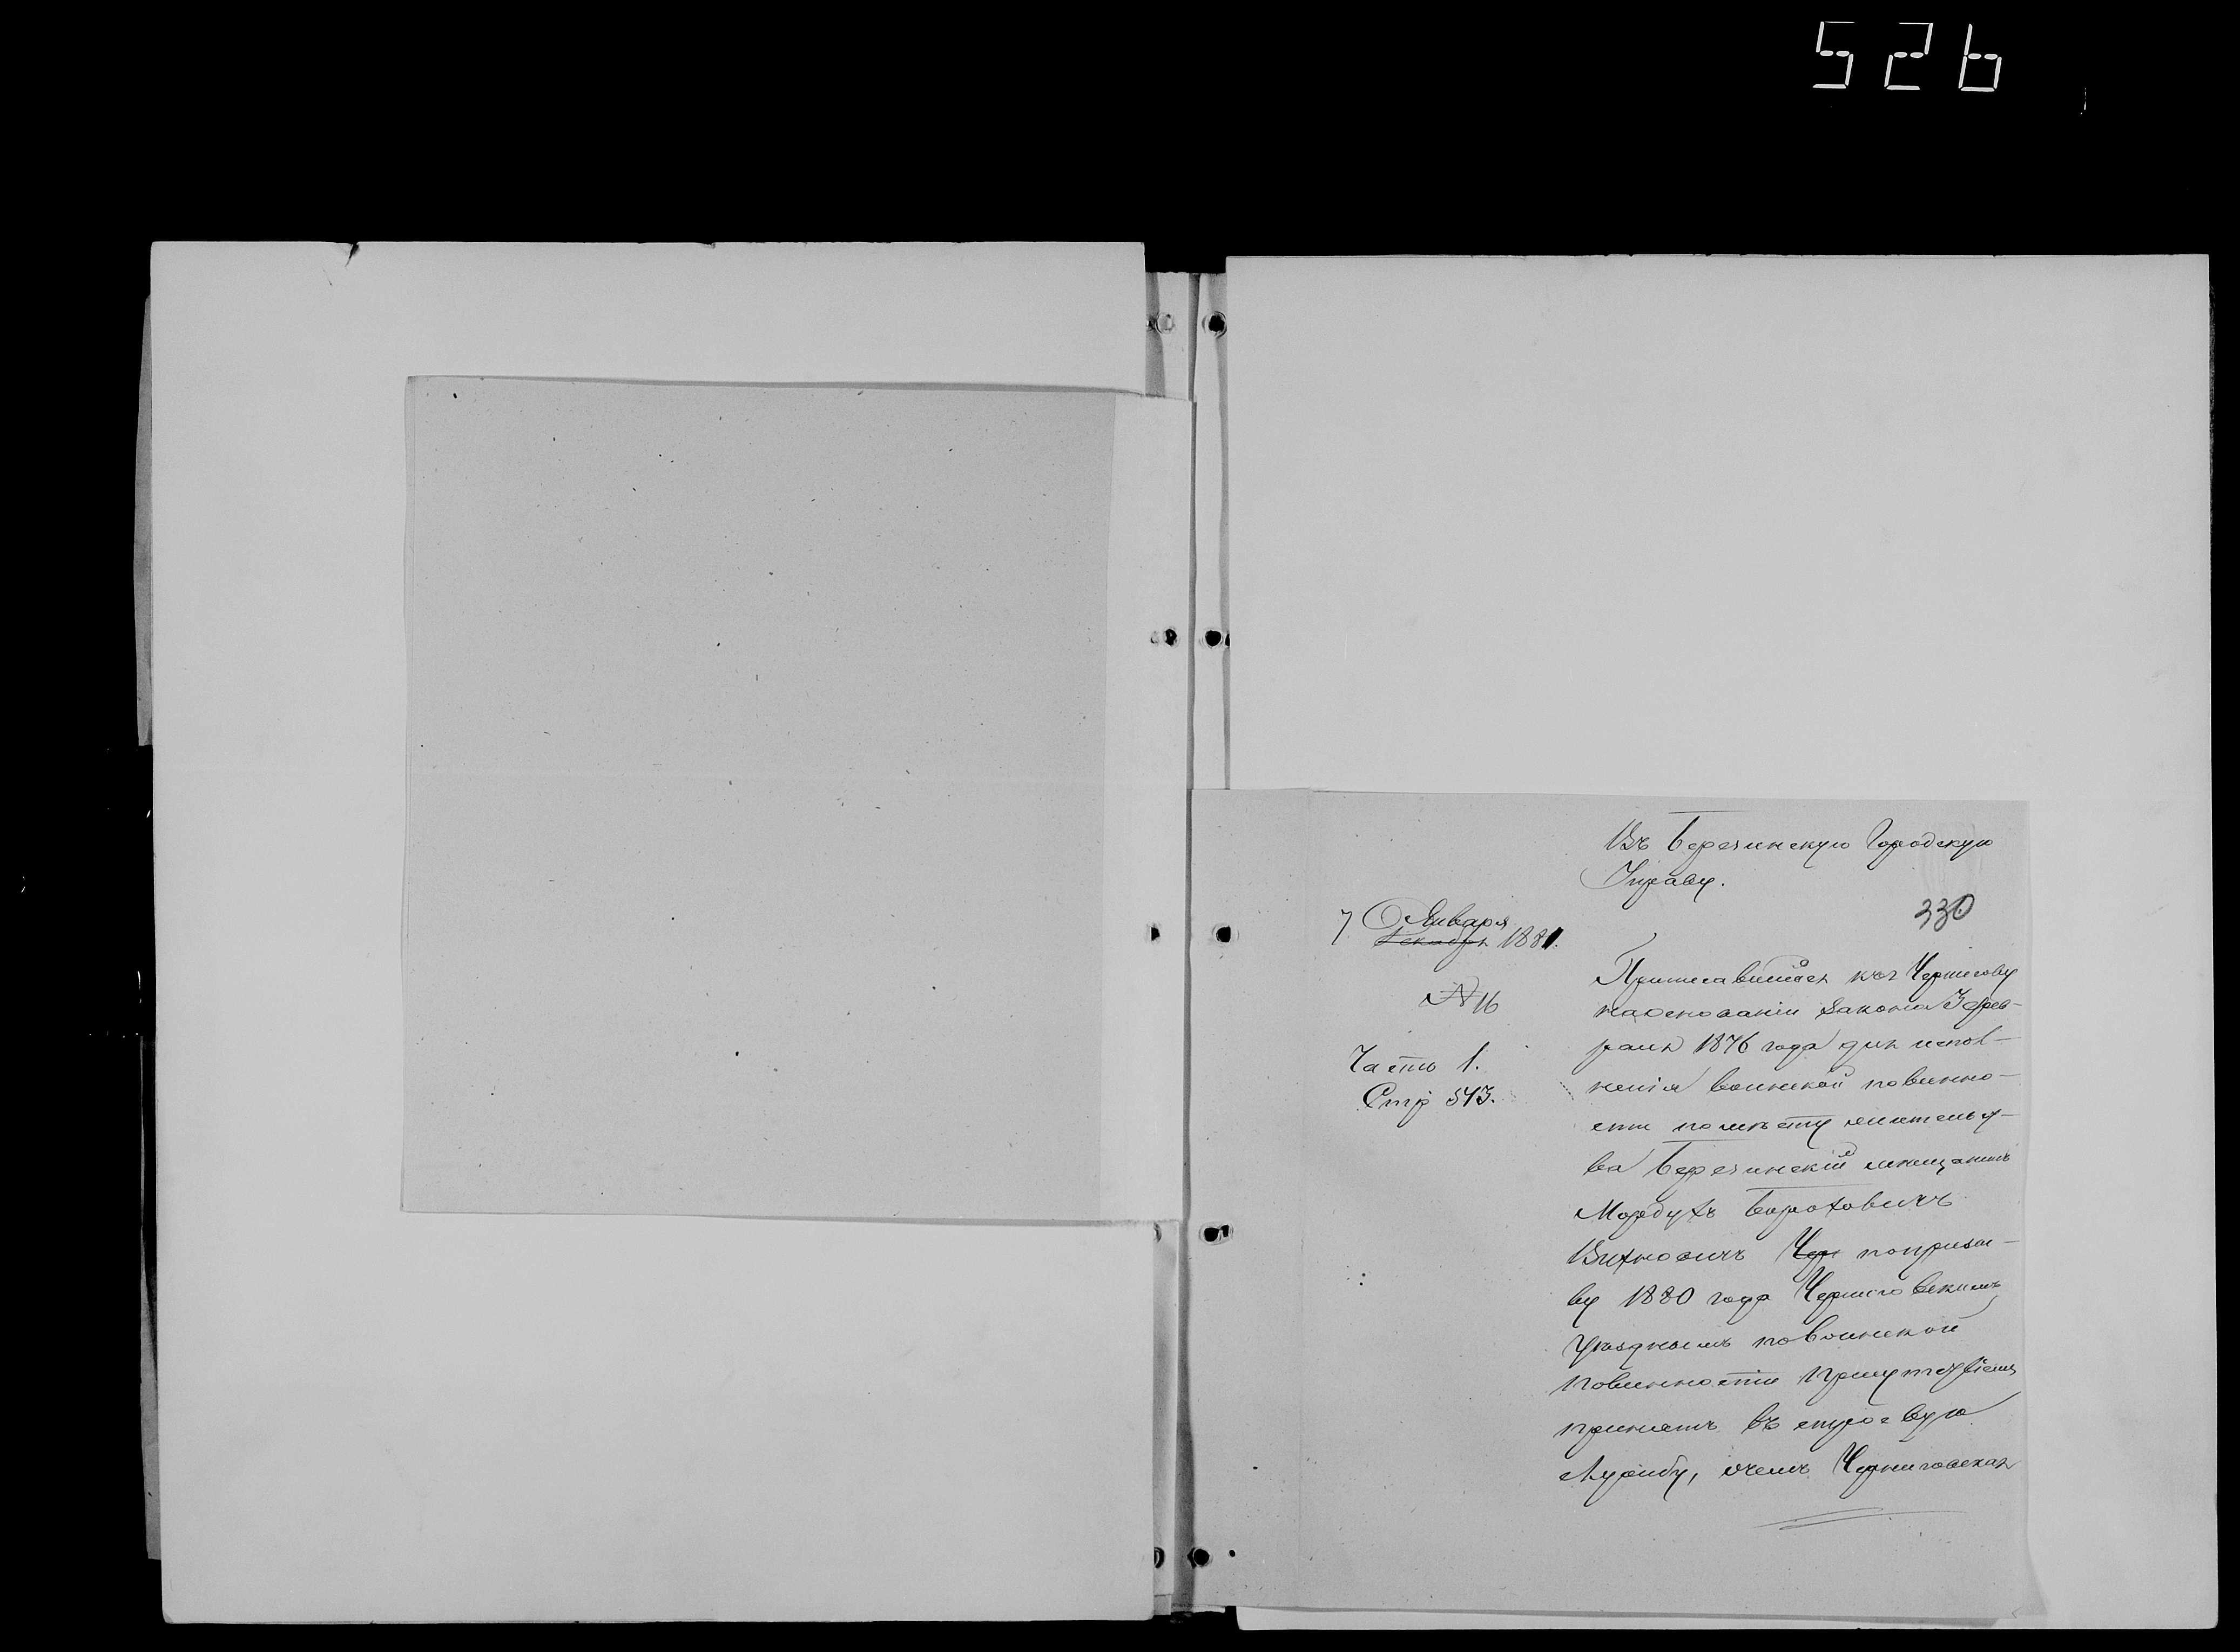 526
Въ Березинскую Городскую
Управу.
330
7 Января
Декабря 1881.
№ 16
Часть 1.
Стр 543.
Приписавшійся къ г Чернигову
на основаніи закона 3 Фев-
раля 1876 года для испол-
ненія воинской повинно-
сти по мѣсту жительст-
ва Березинскій мѣщанинъ
Мордухъ Бороховичъ
Вихновичъ Чер по призы-
ву 1880 года Черниговскимъ
Уѣзднымъ по воинской
повинности Присутствіемъ
принятъ въ строевую
службу, о чемъ Черниговская